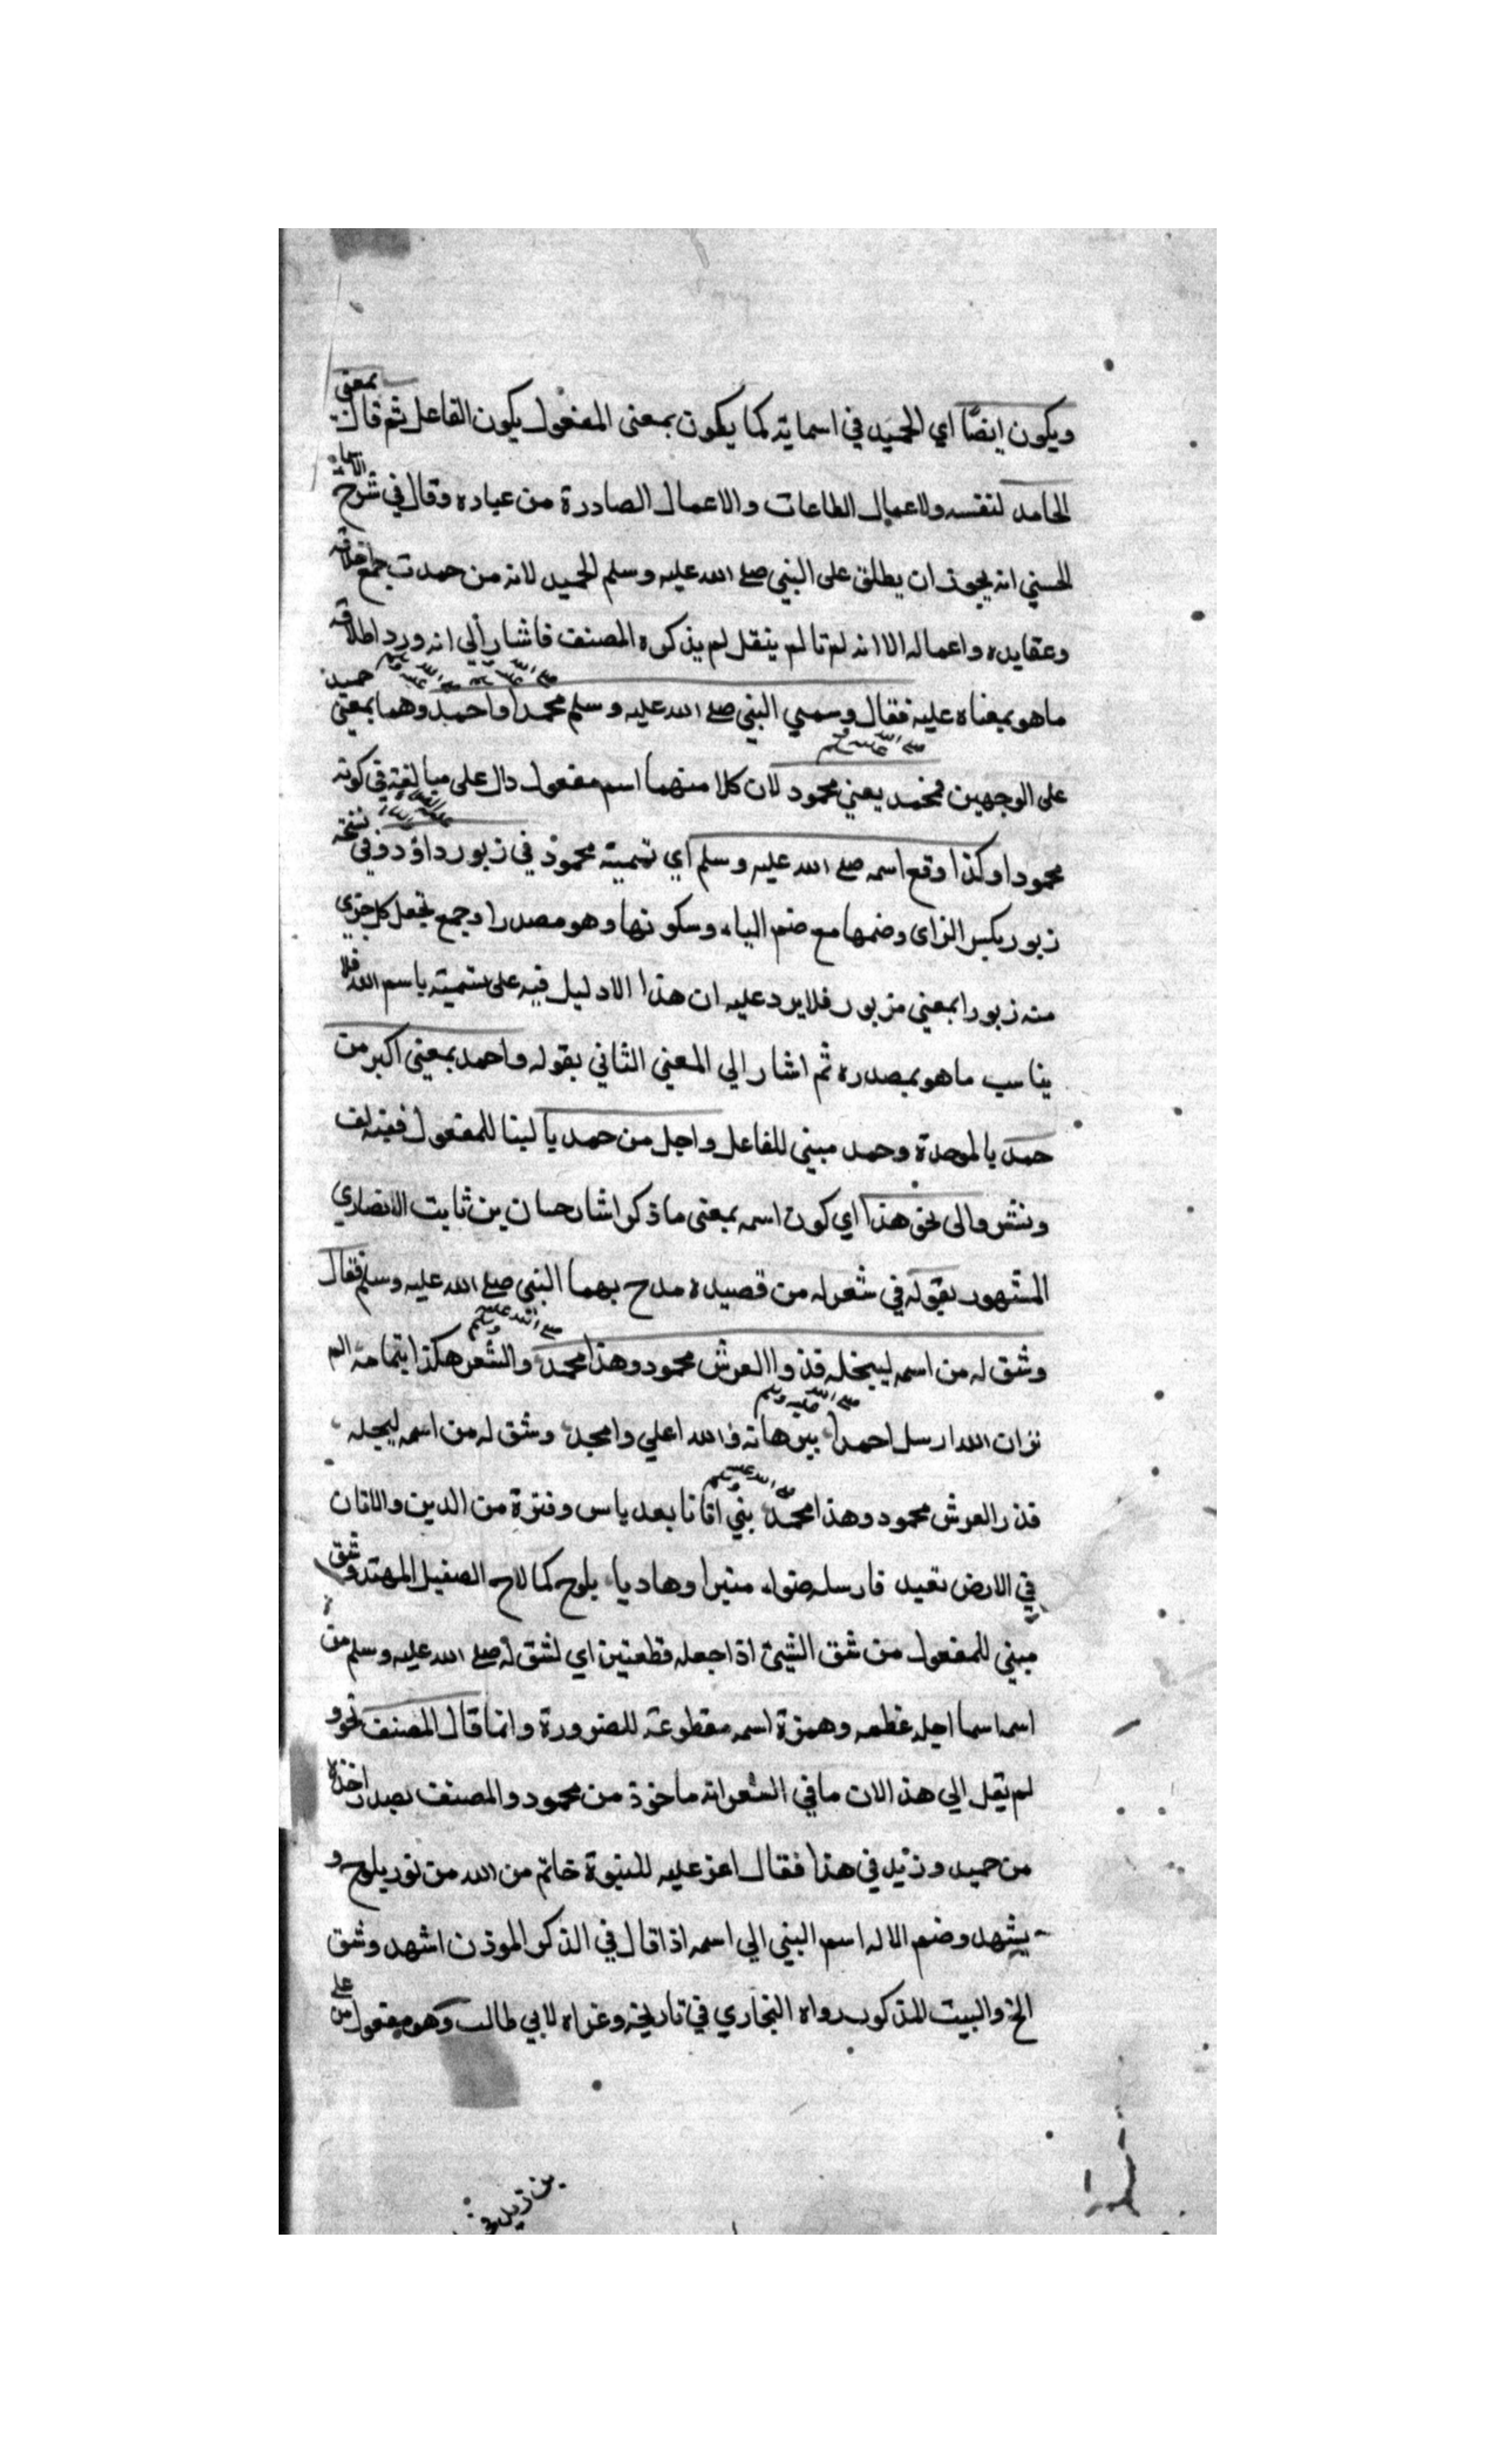 ويكون ايضًا اي الحميد في اسمايه كما يكون بمعنى المفعول يكون الفاعل ثم قال بمعنى
الحامد لنفسه ولاعمال الطاعات والاعمال الصادرة من عباده وقال في شرح الاسماء
الحسني انه يجوز ان يطلق على النبي صلے الله عليه وسلم الحميد لانه من حمدت جميع اخلاقه
وعقايده واعماله الا انه لم تا لم ينقل لم يذكره المصنف فاشار الي انه ورد اطلاقه
ما هو بمعناه عليه فقال وسمي النبي صلے الله عليه وسلم محمدا صلے الله عليه وسلم واحمد صلے الله عليه وسلم وهما بمعنى حميد
على الوجهين فمحمد صلے الله عليه وسلم بمعني محمود لان كلا منهما اسم مفعول دال على مبالغة في كونه
محمودا وكذا وقع اسمه صلے الله عليه وسلم اي تسميته محمود في زبور داؤد وفي نسخة
زبور بكسر الزاى وضمها مع ضم الباء وسكونها وهو مصدر اوجمع بجعل كل جزي
منه زبورا بمعني مزبور فلا يرد عليه ان هذا الا دليل فيه على تسميته باسم الله فلا
يناسب ما هو بصدره ثم اشار الي المعني الثاني بقوله واحمد بمعني اكبر من
حمد بالموحدة وحمد مبني للفاعل واجل من حمد بالبنا للمفعول ففيه لف
ونشر والى نحو هذا اي كون اسمه بمعنى ما ذكر اشار حسان بن ثابت الانصاري
المشهور بقوله في شعر له من قصيده مدح بهما النبي صلے الله عليه وسلم فقال
وشق له من اسمه ليبجله فذ واالعرش محمود وهذا محمد صلے الله عليه وسلم والشعر هكذا بتمامه الم
تر ان الله ارسل احمدا صلے الله عليه وسلم ببرهانه و الله اعلي وامجد وشق له من اسمه ليجله
فذ رالعرش محمود وهذا محمد صلے الله عليه وسلم نبي اتانا بعد ياس وفترة من الدين والاوثان
في الارض تعبد فارسله ضواء منيرا وهاديا يلوح كما لاح الصقيل المهتد وشق
مبني للمفعول من شق الشيئ اذا جعله قطعتين اي لشق له صلے الله عليه وسلم من
اسمه اسما اجله عظمه وهمزة اسمه مقطوعة للضرورة وانما قال المصنف نحو و
لم يقل الي هذ الان ما في الشعر انه ماخوذ من محمود والمصنف بصدد اخذه
من حميد وزيد في هذا فقال اغر عليه للنبوة خاتم من الله من نور يلوح و
يشهد وضم الاله اسم النبي الي اسمه اذا قال في الذكر الموذن اشهد وشق
الخ والبيت المذكور رواه البخاري في تاريخه وعزاه لابي طالب وهو مفعول من علي